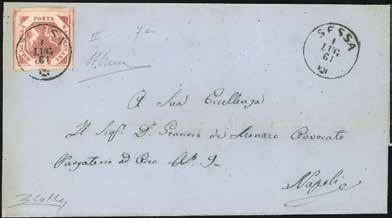 POSTA
SESSA
1
LUG
61
SESSA
1
LUG
61
A Sua Eccellenza
Il Sigr D. Gennaro de Avvocato
Purgatorio ad Arco No 9
Napoli